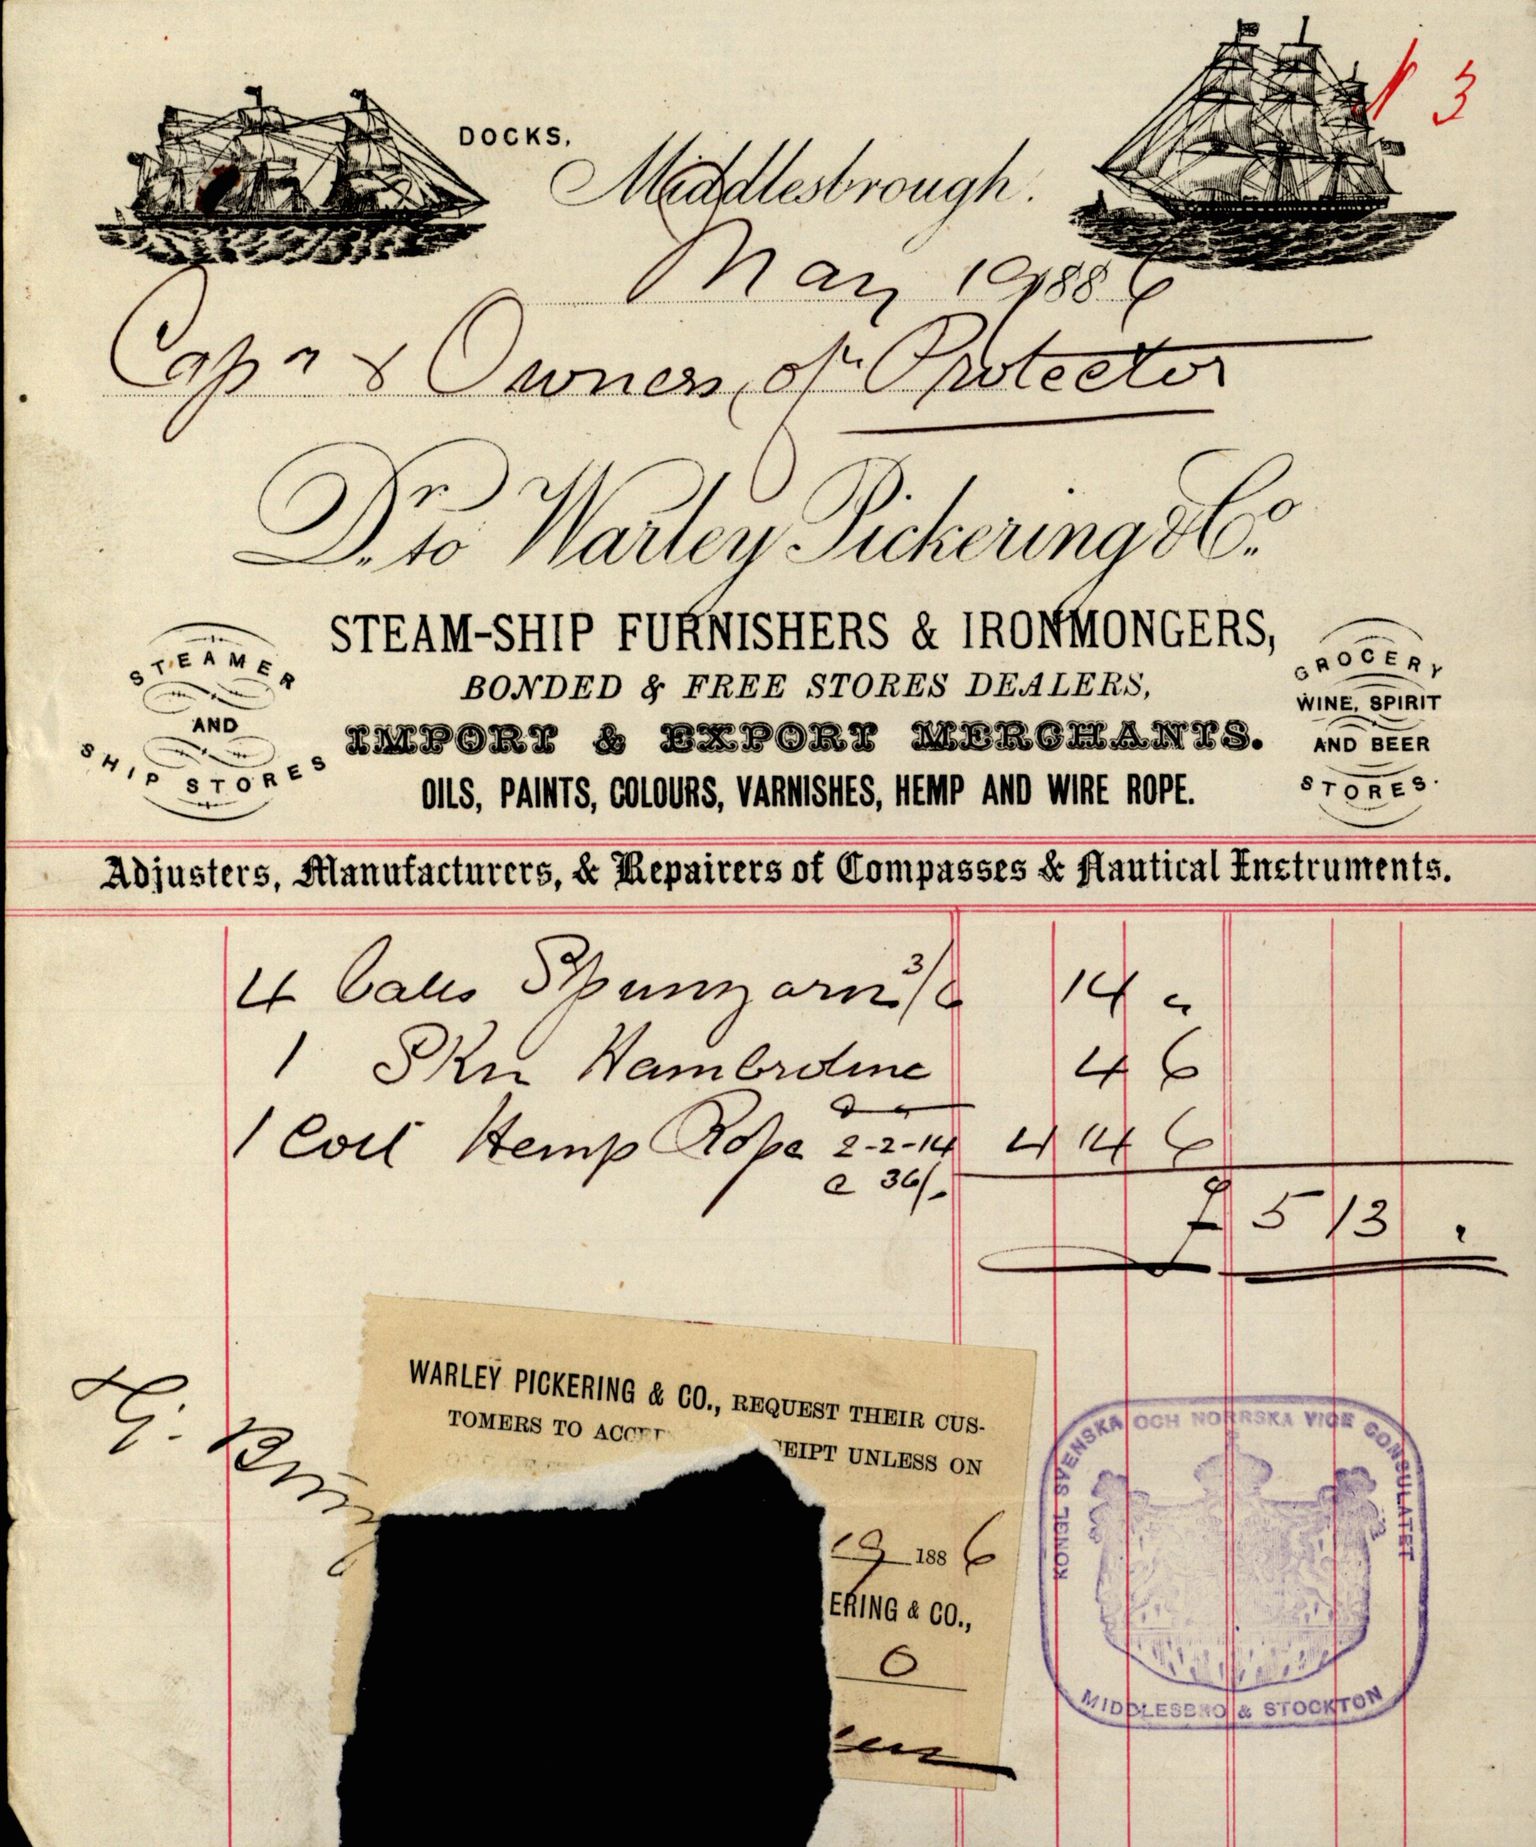 N 3
DOCKS,
Middlesbrough.
May 19 1886
Capn & Owners, of Protector
Dr. to Warley Pickering & Co.
STEAM-SHIP FURNISHERS & IRONMONGERS,
BONDED & FREE STORES DEALERS,
IMPORT & EXPORT MERCHANTS.
OILS, PAINTS, COLOURS, VARNISHES, HEMP AND WIRE ROPE.
STEAMER
AND
SHIP STORES
GROCERY
WINE, SPIRIT
AND BEER
STORES.
Adjusters, Manufacturers, & Repairers of Compasses & Nautical Instruments.
4 Spunyarn 3/6 14 "
1 Skn Hambroline 4 6
1 Coil Hemp Rope 2-2-14 4 14 6
@ 36/-
£ 5 13 "
WARLEY PICKERING & CO., REQUEST THEIR CUS-
TOMERS TO ACCE CEIPT UNLESS ON
19 1886
ERING & CO.,
0
KONGL SVENSKA OCH NORRSKA VICE CONSULATET
MIDDLESBRO & STOCKTON